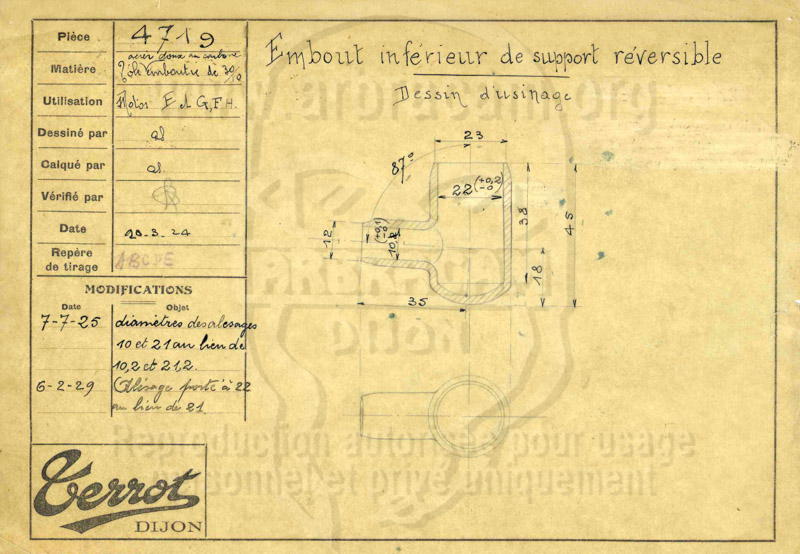 Pièce 4719
Matière acier doux au carbone
Tôle emboutie de 30/10
Utilisation Motos E et G, F.H.
Dessiné par
Calqué par
Vérifié par
Date 20-3-24
Repère de tirage ABCDE
MODIFICATIONS
Date Objet
7-7-25 diamètres des alesages
10 et 21 au lieu de
10,2 et 21,2.
6-2-29 Alésage porté à 22
au lieu de 21.
Terrot
DIJON
Embout inférieur de support réversible
Dessin d'usinage
23
87°
22 (+0,2 -0)
38
45
12
(+0,1 -0)
18
35
www.arbracam.org
ARBRACAM
DIJON
Reproduction autorisée pour usage
personnel et privé uniquement